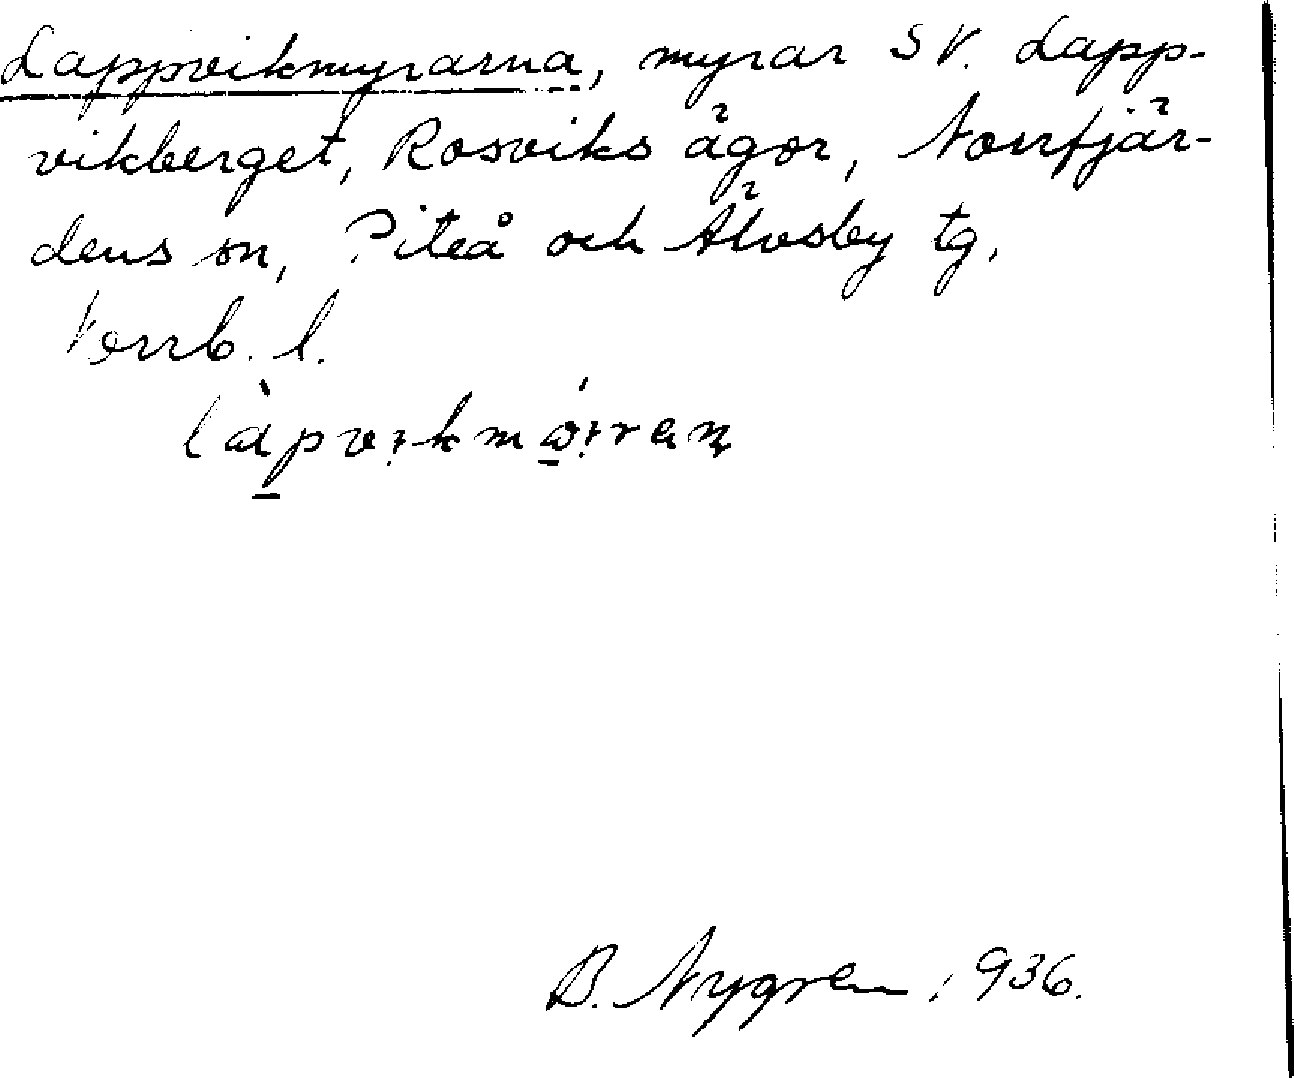 Lappvikmyrarna, myrar SV. Lapp-
vikberget, Rosviks ägor, Norrfjär-
dens sn, Piteå och Älvsby tg,
Norrb. l.
B. Nygren 1936.